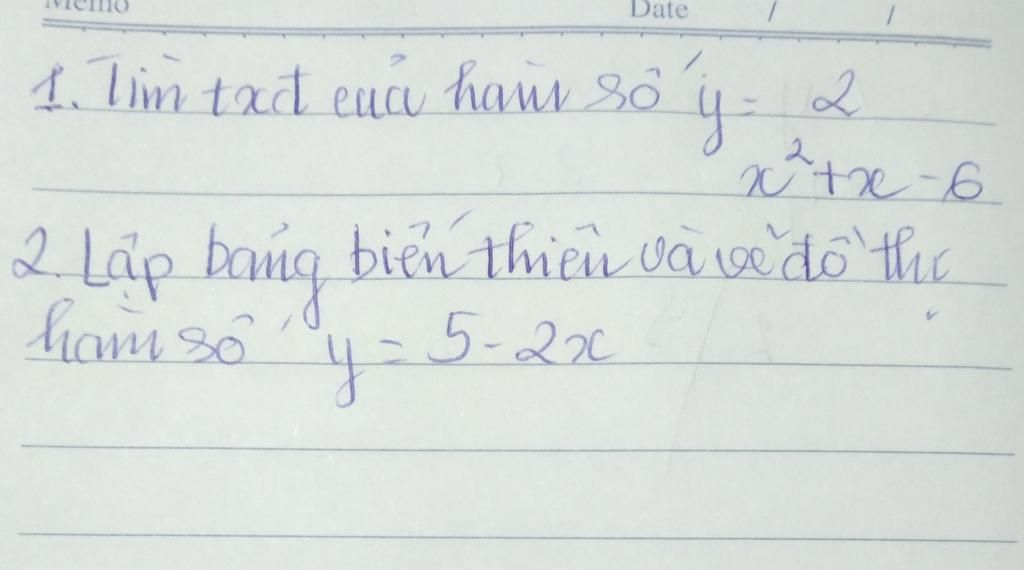 Memo Date / /
1. Tìm txđ của hàm số y = 2
x² + x - 6
2. Lập bảng biến thiên và vẽ đồ thị
hàm số y = 5 - 2x